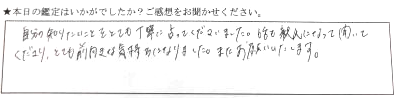 ★本日の鑑定はいかがでしたか？ご感想をお聞かせください。
自分の知りたいことをとても丁寧に占ってくださいました。話も親身になって聞いて
くださり、とても前向きな気持ちになりました。またお願いいたします。